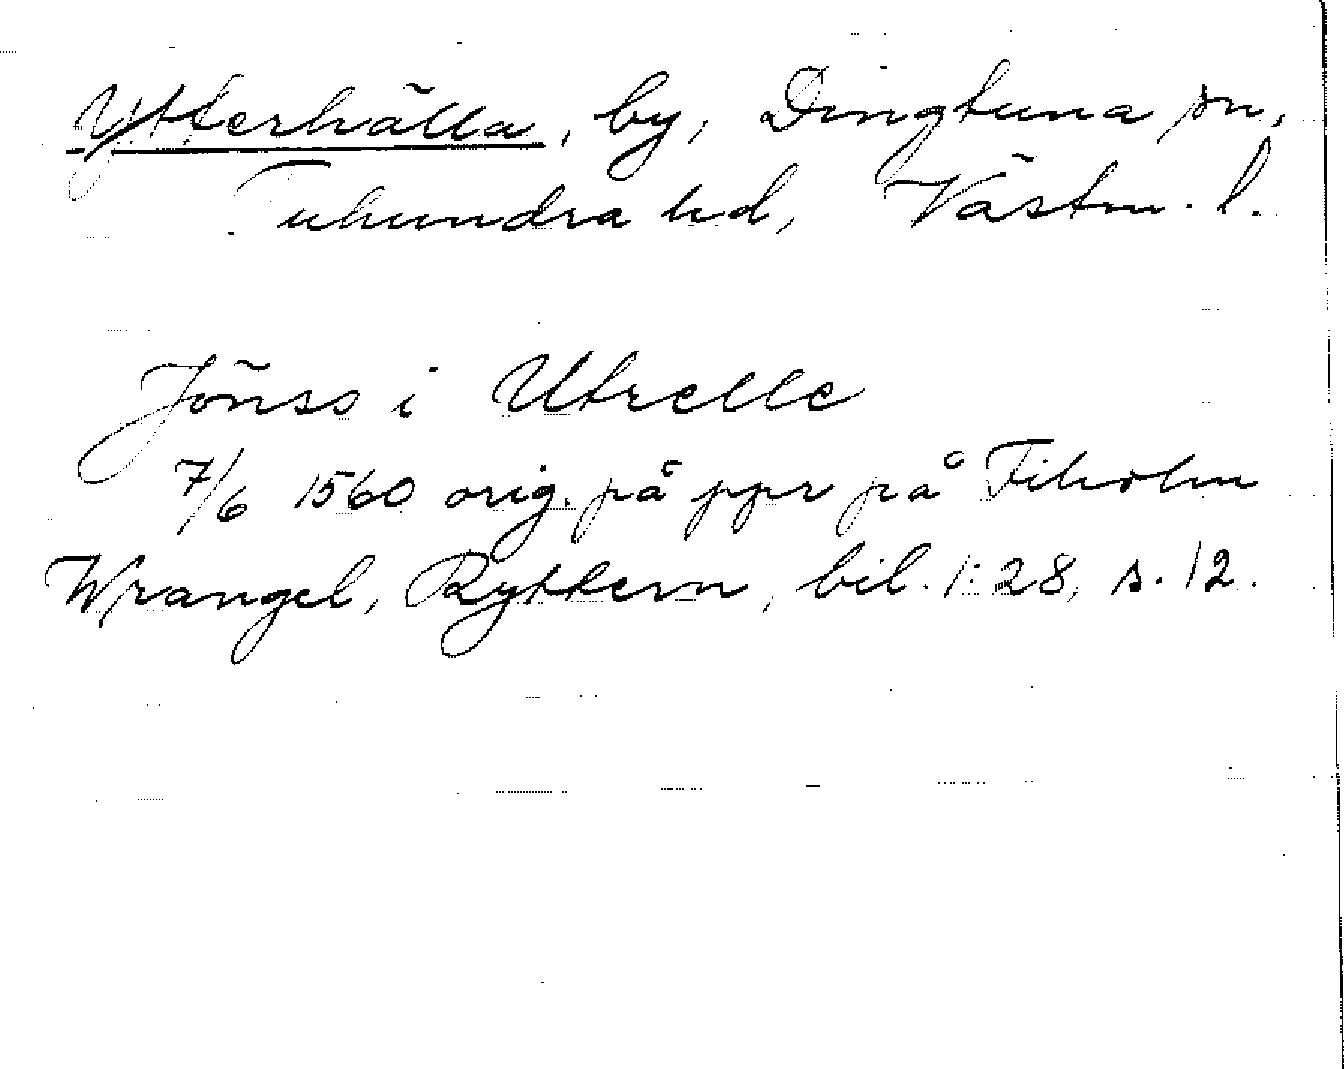 Ytterhälla, by, Dingtuna sn,
Tuhundra hd, Västm. l.
Jönss i Utrelle
7/6 1560 orig. på ppr på Fiholm
Wrangel, Ryttern, bil. 1:28, s. 12.